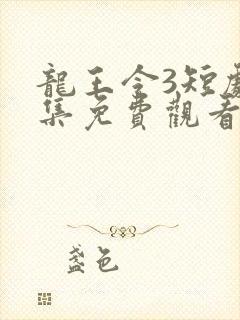 龍王令3短劇
集免費觀看
盞色